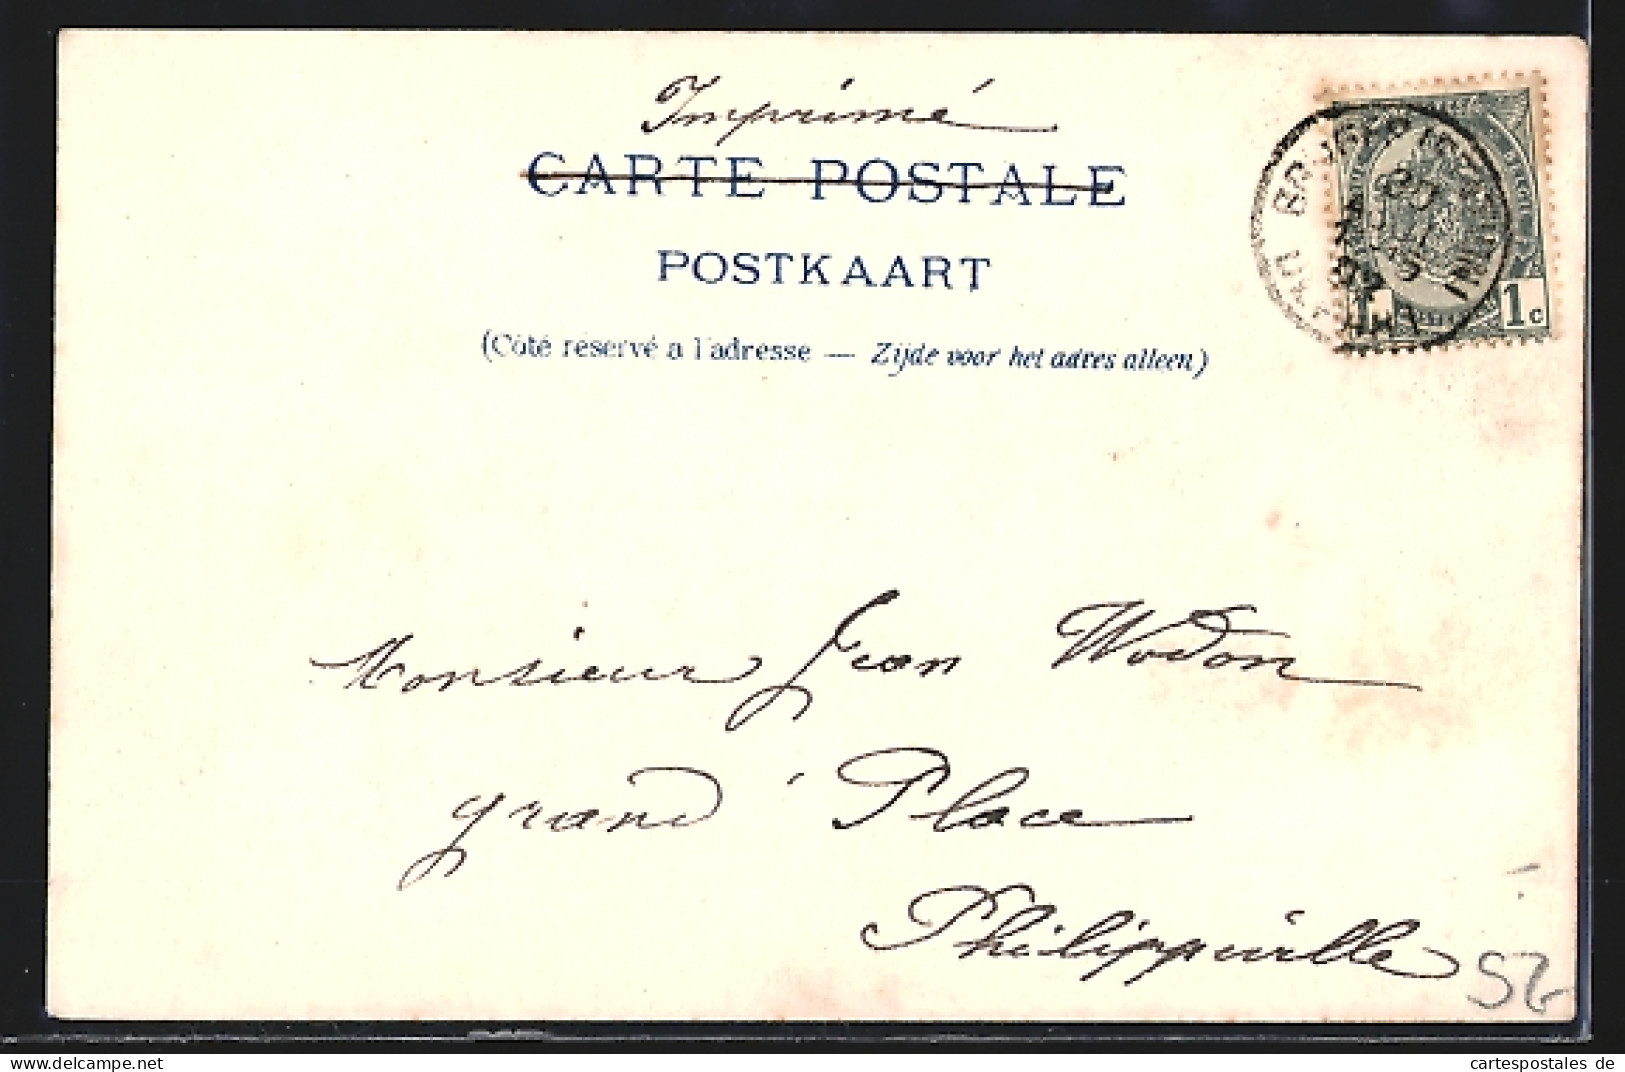 Imprimé
CARTE POSTALE
POSTKAART
(Côté réservé a l'adresse — Zijde voor het adres alleen)
1c
Monsieur Jean Wodon
grand' Place
Philippeville
cartespostales de